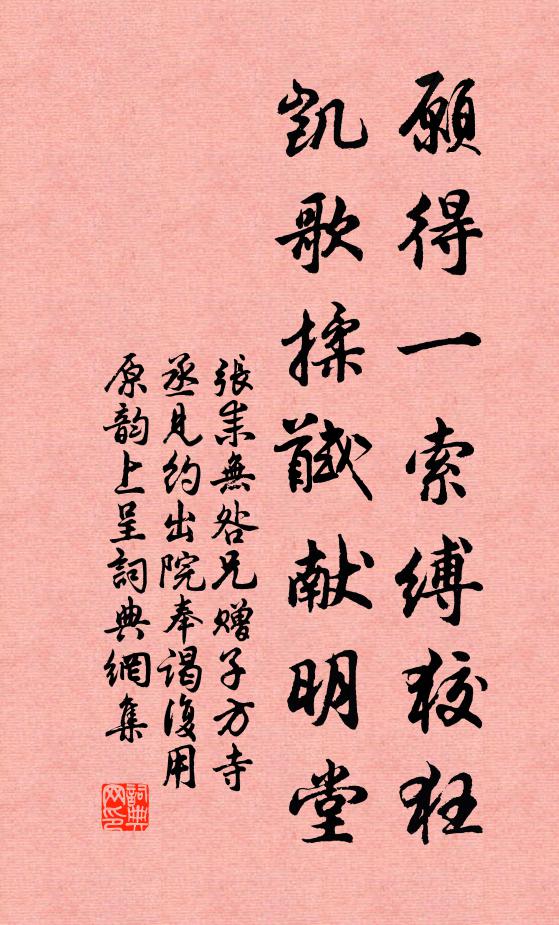 願得一索縛狡狂
凱歌揉馘献明堂
張耒無咎兄贈子方寺
丞見約出院奉謁復用
原韵上呈詞典網集
詞典
网印